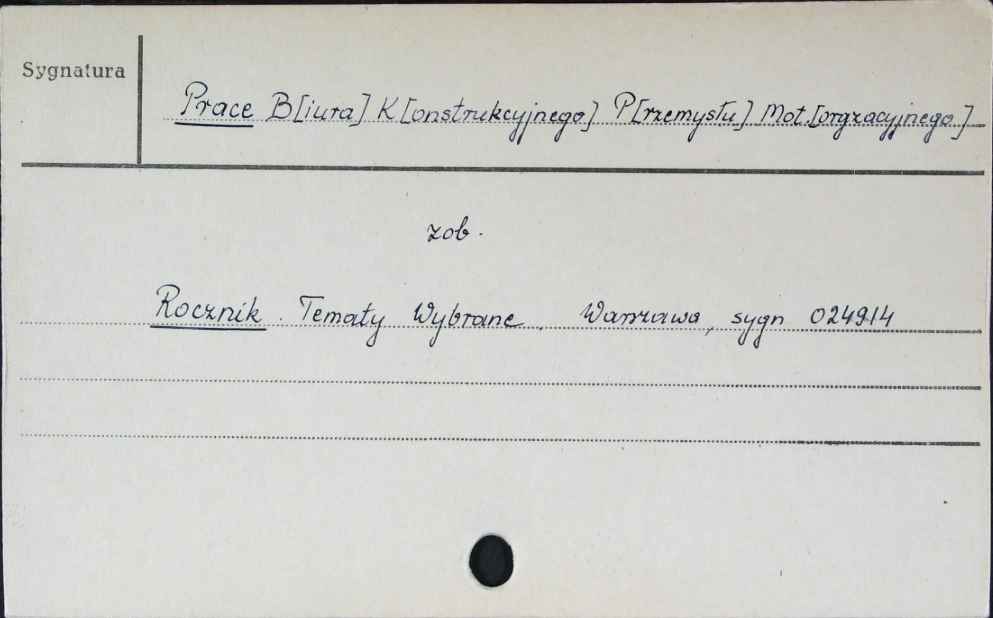 Sygnatura
Prace B[iura] K[onstrukcyjnego] P[rzemysłu] Mot.[orgzacyjnego]
zob.
Rocznik. Tematy Wybrane. Warszawa, sygn 024914